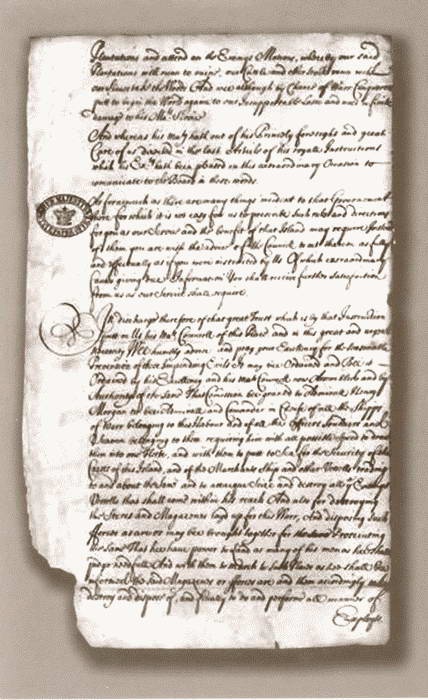 Plantations and attend on the Enemys Motions, whereby our said
Plantations will runn to ruine, our Cattle and
our Lives take the Woods And wee although by Chance of Warr Conquerors
putt to begin the World againe to our Insupportable Losse and
damage to his Ma.ties Service
And whereas his Ma.ty hath out of his Princely foresight and great
Care of us in the last Article of his royall Instructions
which his Ex.cy hath been pleased on this extraordinary Occasion to
comunicate to the Board in these words
forasmuch as there are many things incident to that Government
there for which it is not easy for us to prescribe such rules and directions
for you as our Service and the benefit of that Island may require
of them you are with the advice of the Councell to act therein as fully
and effectually as if you were instructed by Us Of which extraordinary
Cases giving due Information You shall receive further satisfaction
from us as our Service shall require
In discharge therefore of that great Trust which is by that Instruction
putt on Us his Ma.ties Councell of this Place and in this great and urgent
Necessity Wee humbly advise and pray your Excellency for the seasonable
Prevention of these Impending Evils It may bee Ordained and Bee it
Ordained by his Excellency and his Ma.ties Councell now Assembled and by
Authority of the Same That Comission bee granted to Admirall Henry
Morgan to bee Admirall and Comander in Cheife of all the Shipps
of Warr belonging to this Harbour And of all the Officers Souldiers and
Seamen belonging to them requiring him with all possible Speed to draw
them into one Fleete, and with them to putt to Sea for the Security of the
Coast of this Island, and of the Merchants Ships and other Vessells trading
to and about the Same and to attacque Seize and destroy all y.e Enemyes
Vessells that shall come within his reach And also for destroying
the Stores and Magazenes layd up for this Warr, And dispersing such
fforces as are or may bee brought together for the Prosecuting
the Same That hee have power to land as many of his men as hee shall
judge needfull And with them to march to such Places as hee shall bee
informed the said Magazenes or fforces are and them accordingly
destroy and disperse of, and finally to do and performe all manner of
Exployts